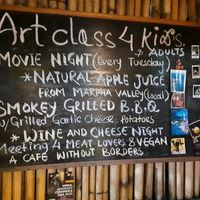 Art class 4 Kids
& ADULTS
MOVIE NIGHT (Every Tuesday)
*NATURAL APPLE JUICE
FROM MARPHA VALLEY (local)
SMOKEY GRILLED B.B.Q
W/Grilled Garlic Cheese, Potatoes
*WINE AND CHEESE NIGHT
Meeting 4 MEAT LOVERS & VEGAN
A CAFE WITHOUT BORDERS